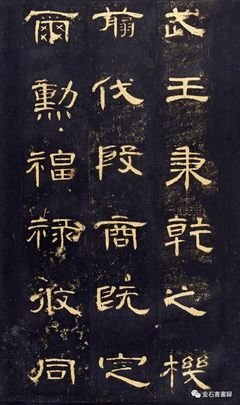 武王秉乾之機
翦伐殷商既定
爾勳福祿攸同
金石書畫録